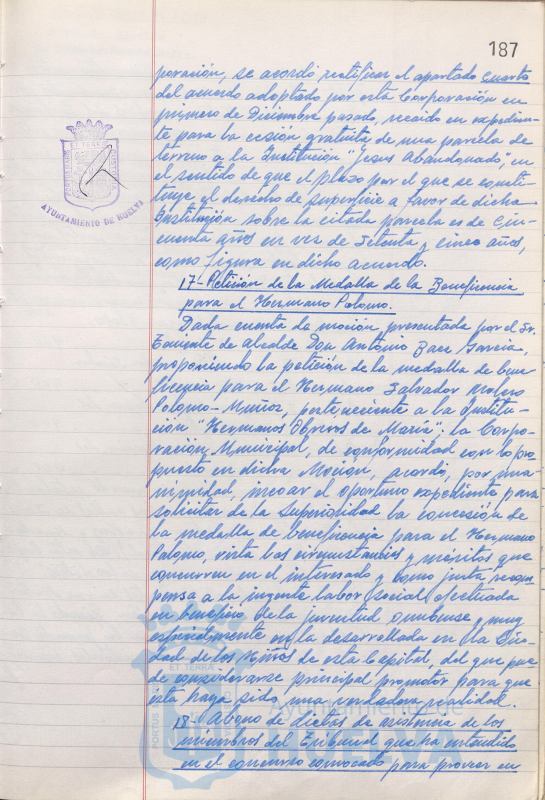 187
poración, se acordó rectificar el apartado cuarto
del acuerdo adoptado por esta Corporación en
primero de Diciembre pasado, recaido en expedien-
te para la cesión gratuita de una parcela de
terreno a la Institución "Jesus Abandonado", en
el sentido de que el plazo por el que se consti-
tuye el derecho de superficie a favor de dicha
Institución sobre la citada parcela es de Cin-
cuenta años en vez de Setenta y cinco años,
como figura en dicho acuerdo.
17- Petición de la Medalla de la Beneficencia
para el Hermano Palomo.
Dada cuenta de moción presentada por el Sr.
Teniente de Alcalde Don Antonio Baez Garcia,
proponiendo la petición de la medalla de bene-
ficencia para el Hermano Salvador
Palomo-Muñoz, perteneciente a la Institu-
ción "Hermanos Obreros de Maria"; la Corpo-
ración Municipal, de conformidad con lo pro-
puesto en dicha Moción, acordó, por una-
nimidad, incoar el oportuno expediente para
solicitar de la Superioridad la concesión de
la medalla de beneficencia para el Hermano
Palomo, vista las circunstancias y méritos que
concurren en el interesado y como justa recom-
pensa a la ingente labor social efectuada
en beneficio de la juventud onubense y muy
especialmente en la desarrollada en la Ciu-
dad de los Niños de esta Capital, del que pue-
de considerarse principal promotor para que
ésta haya sido una verdadera realidad.
18- Abono de dietas de asistencia de los
miembros del Tribunal que ha entendido
en el concurso convocado para proveer en
AYUNTAMIENTO DE HUELVA
ET TERRA
PORTUS
Ayuntamiento de
HUELVA